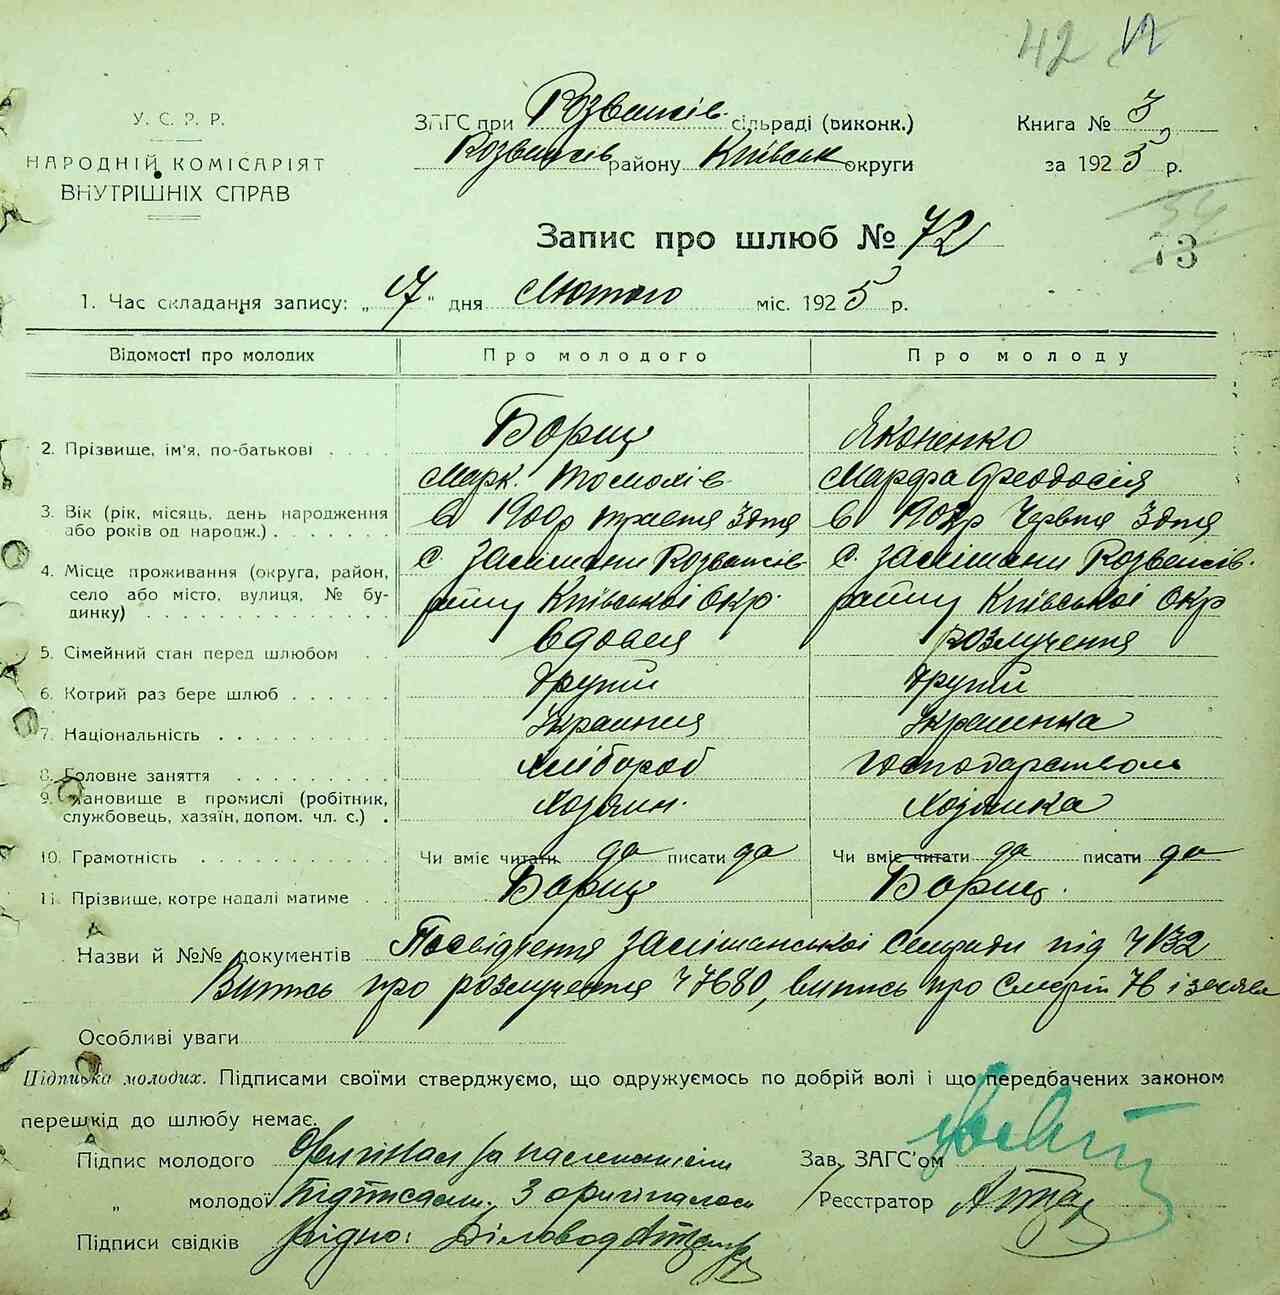 42 17
У. С. Р. Р.
НАРОДНІЙ КОМІСАРІЯТ
ВНУТРІШНІХ СПРАВ
ЗАГС при Розважів. сільраді (виконк.)
Розважів району Київськ округи
Книга № 3
за 1925 р.
Запис про шлюб № 72
54
73
1. Час складання запису: „ 17 " дня Лютого міс. 1925 р.
Відомості про молодих Про молодого Про молоду
2. Прізвище, ім'я, по-батькові Борищ Яконенко
Марк. Марфа Феодосія
3. Вік (рік, місяць, день народження або років од народж.) в 1900р травня 3 дня в 1902р Червня 3 дня
4. Місце проживання (округа, район, село або місто, вулиця, № будинку) с. Розважів. с. Розважів.
райну Київської Окр. райну Київської Окр
5. Сімейний стан перед шлюбом Вдовец розлучення
6. Котрий раз бере шлюб другий другий
7. Національність Українець Українка
8. Головне заняття хлібороб господарством
9. Становище в промислі (робітник, службовець, хазяїн, допом. чл. с.) Хозяин. Хозяйка
10. Грамотність Чи вміє читати да писати да Чи вміє читати да писати да
11. Прізвище, котре надалі матиме Борищ Борищ.
Назви й №№ документів Посвідчення сільради під Ч 132
Випись про розлучення Ч 7680, випись про смерть 76
Особливі уваги
Підписка молодих. Підписами своїми стверджуємо, що одружуємось по добрій волі і що передбачених законом
перешкід до шлюбу немає.
Підпис молодого Оригінал за
„ молодої Підписали. З оригіналом
Підписи свідків Вірно: Діловод
Зав. ЗАГС'ом
Реєстратор